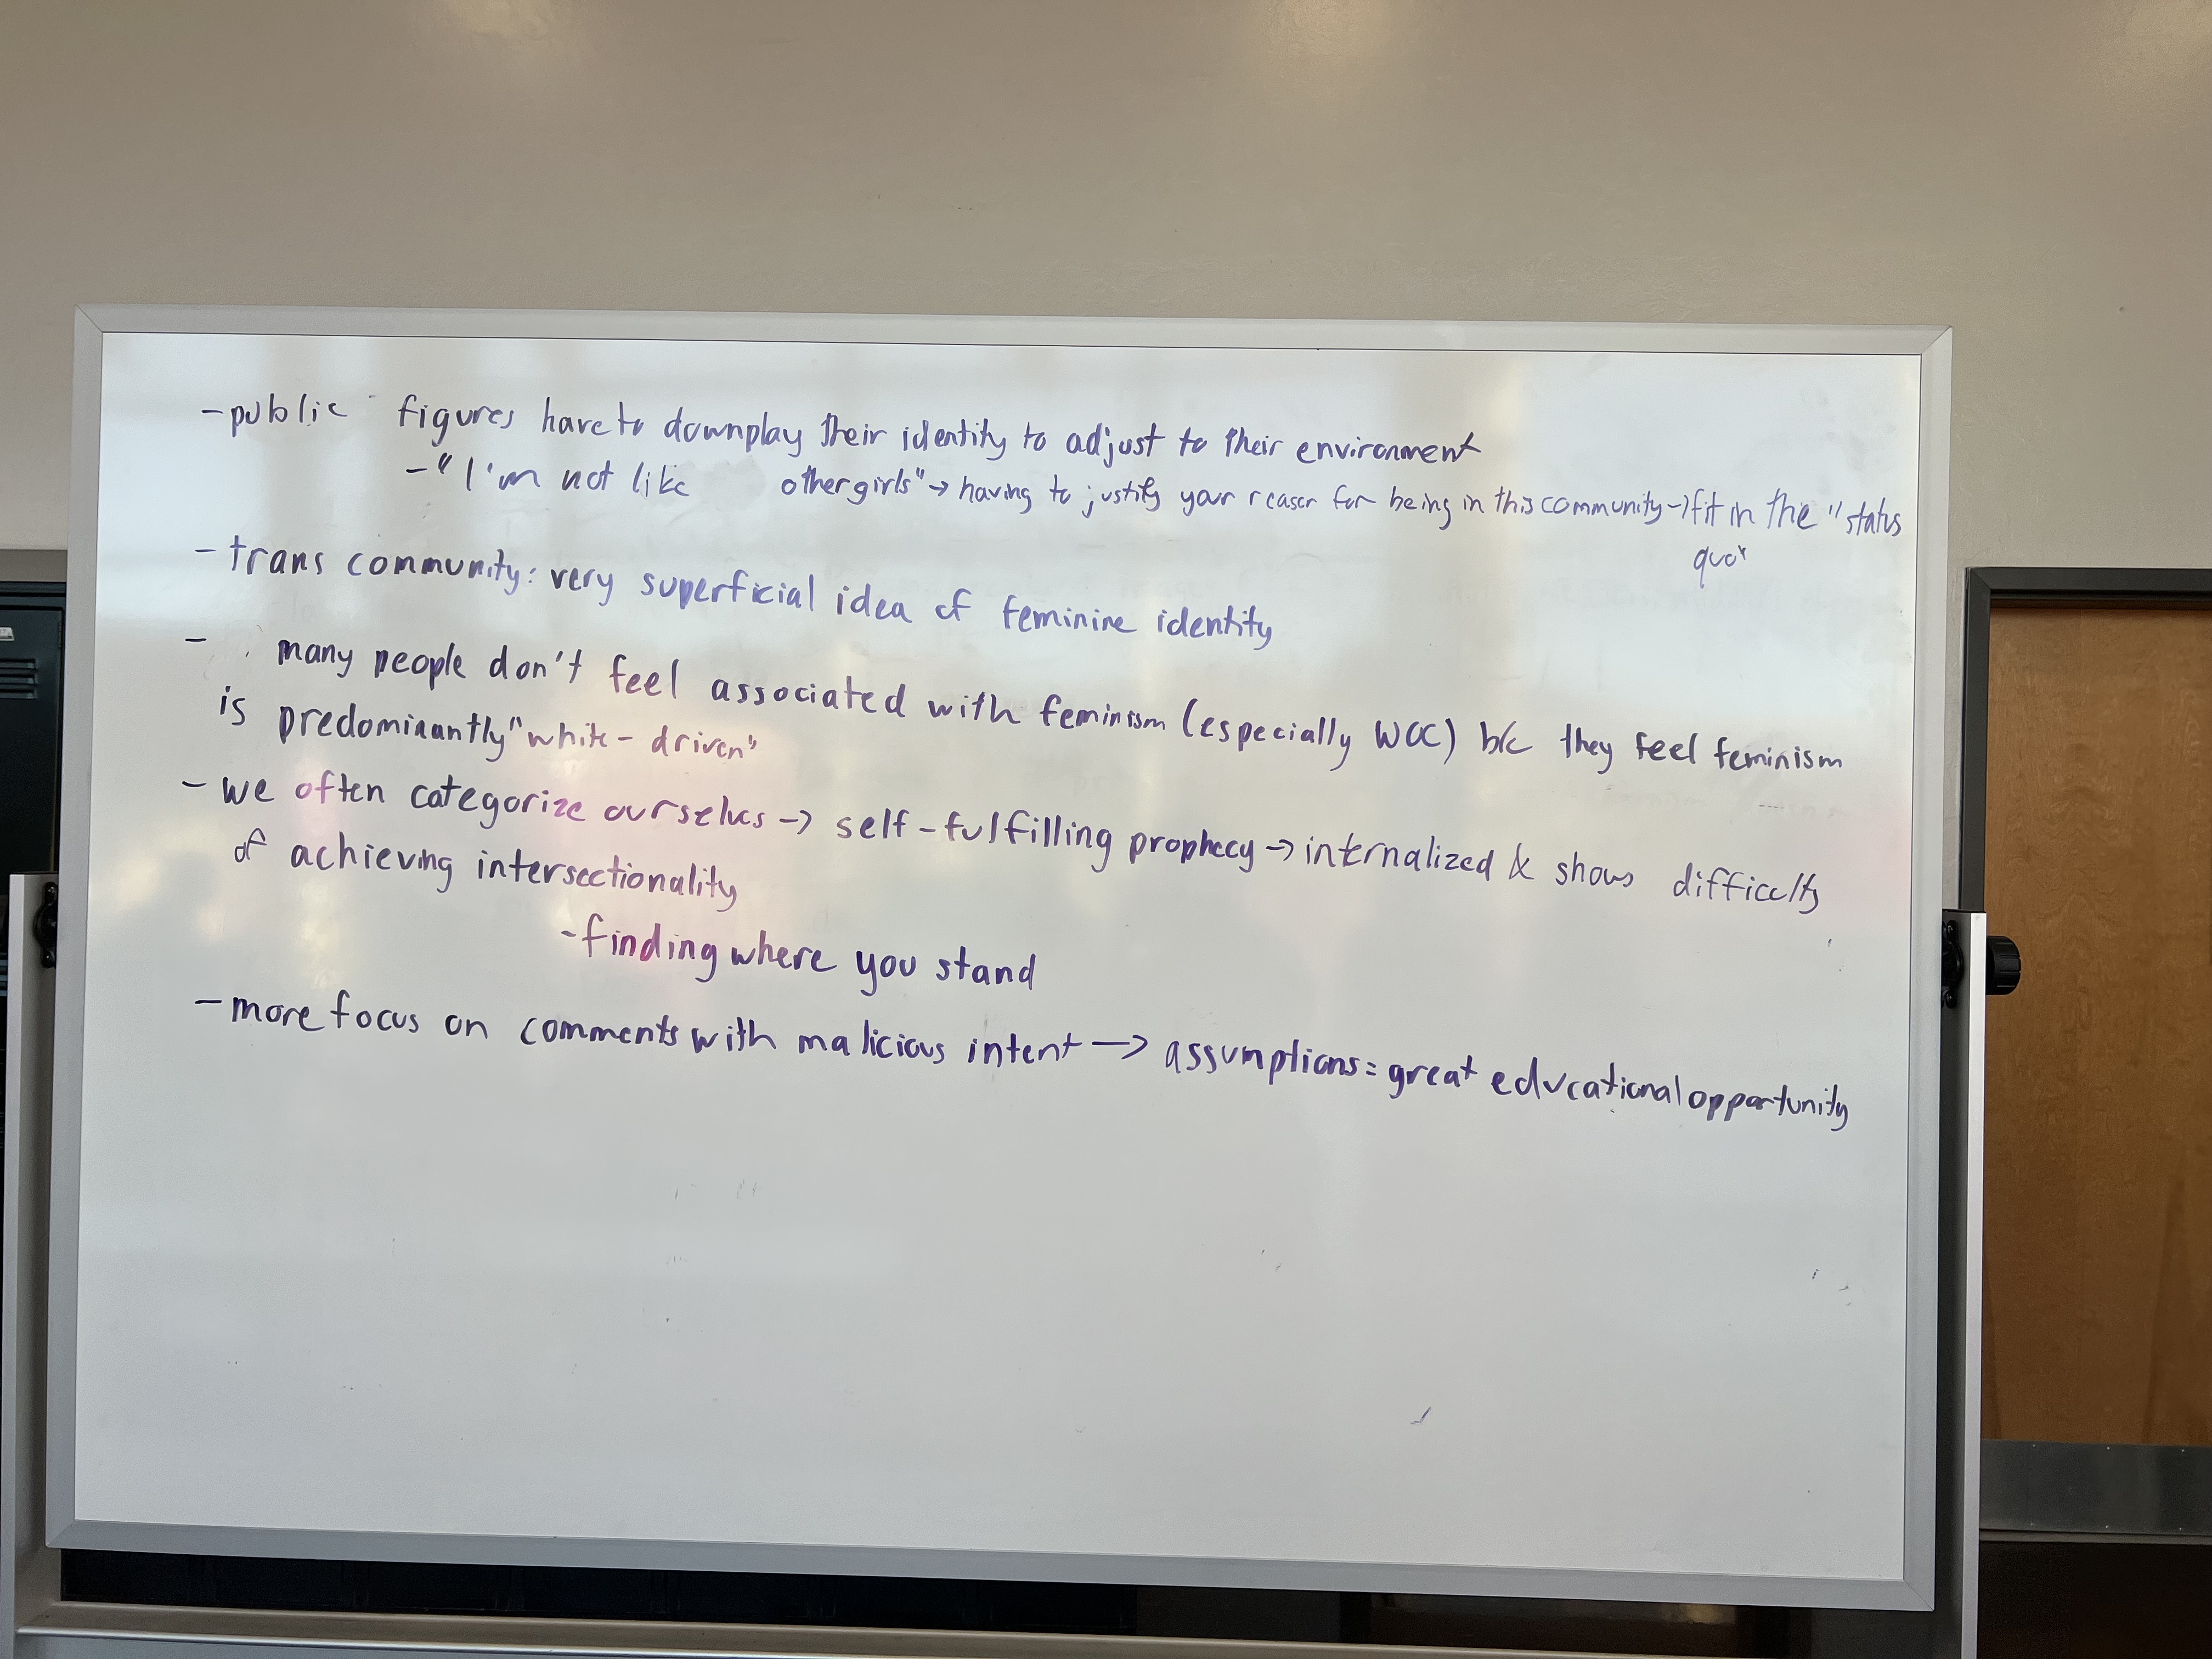 - public figures have to downplay their identity to adjust to their environment
- "I'm not like other girls" → having to justify your reason for being in this community → fit in the "status
quo"
- trans community: very superficial idea of feminine identity
- many people don't feel associated with feminism (especially WOC) b/c they feel feminism
is predominantly "white-driven"
- we often categorize ourselves → self-fulfilling prophecy → internalized & shows difficulty
of achieving intersectionality
- finding where you stand
- more focus on comments with malicious intent → assumptions = great educational opportunity